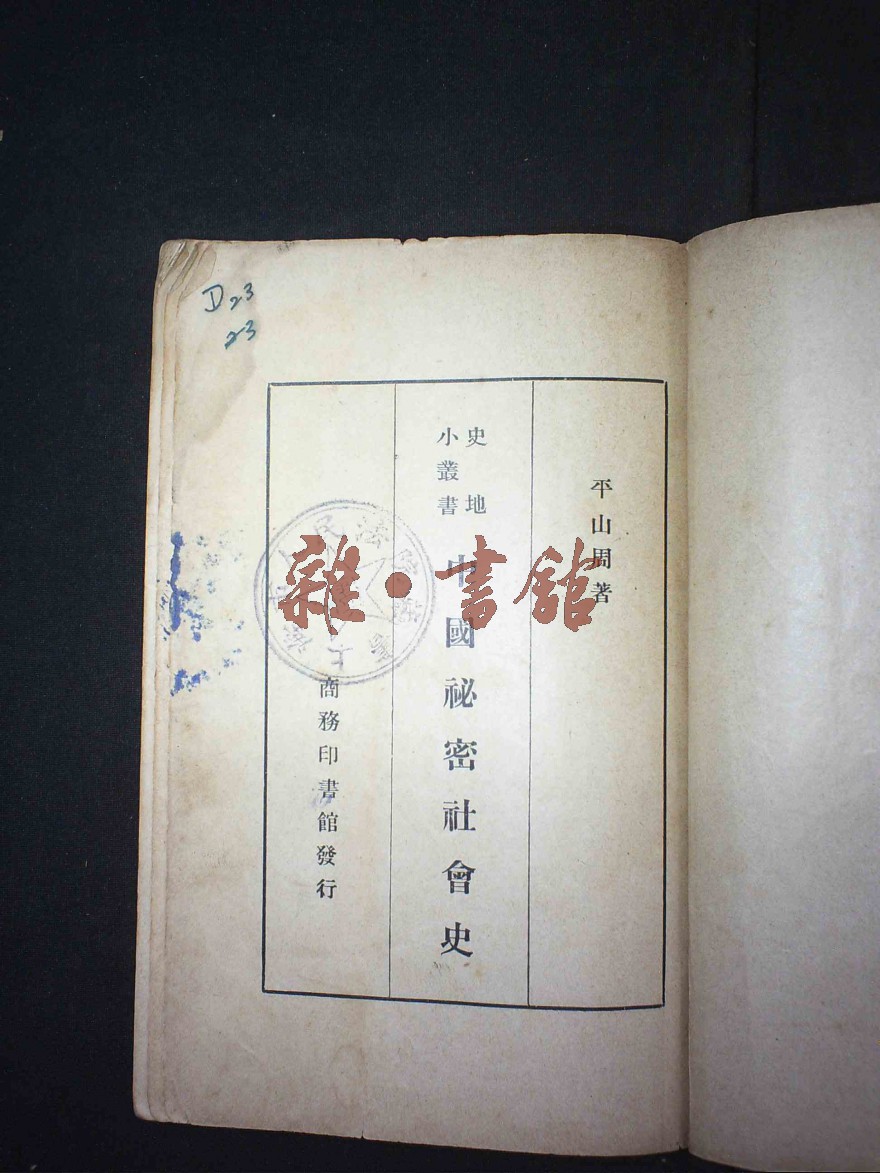 D23
23
平山周著
史地
小叢書
中國祕密社會史
商務印書館發行
雜·書館